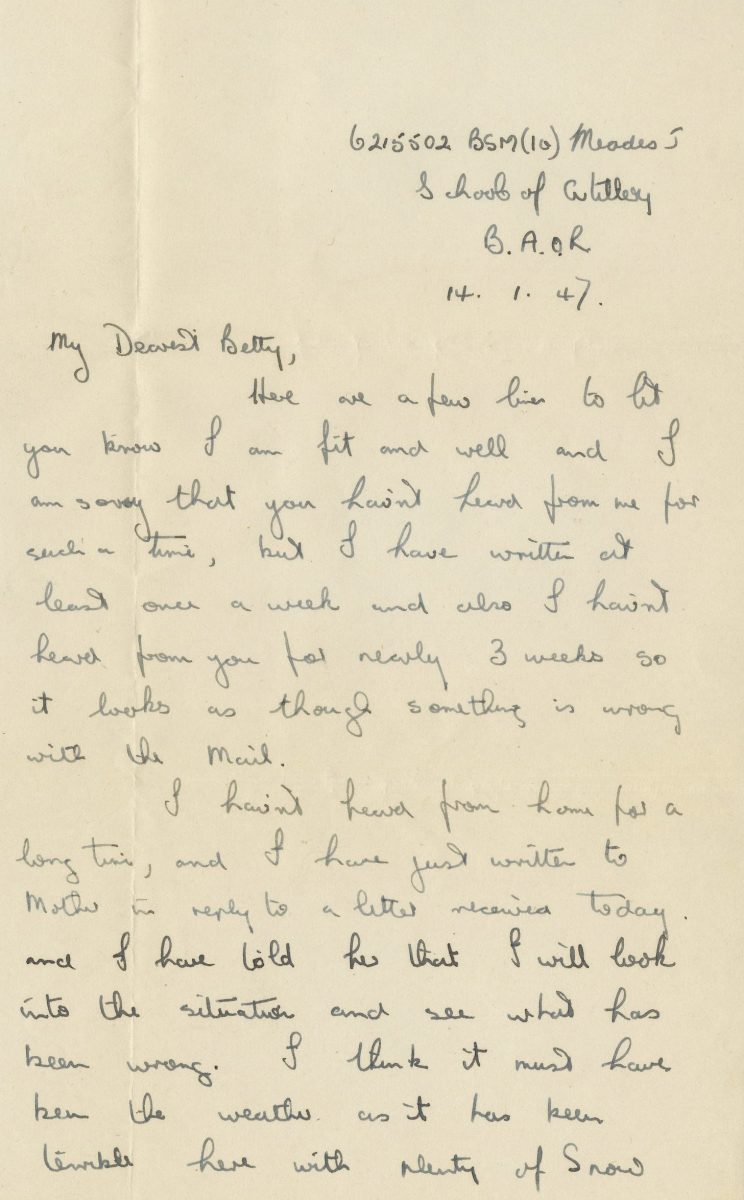 6215502 BSM(10) Meades J
School of Artillery
B.A.O.R
14. 1. 47.
My Dearest Betty,
Here are a few lines to let
you know I am fit and well and I
am sorry that you hav'nt heard from me for
such a time, but I have written at
least once a week and also I hav'nt
heard from you for nearly 3 weeks so
it looks as though something is wrong
with the Mail.
I hav'nt heard from home for a
long time, and I have just written to
Mother in reply to a letter received today.
and I have told her that I will look
into the situation and see what has
been wrong. I think it must have
been the weather. as it has been
terrible here with plenty of Snow